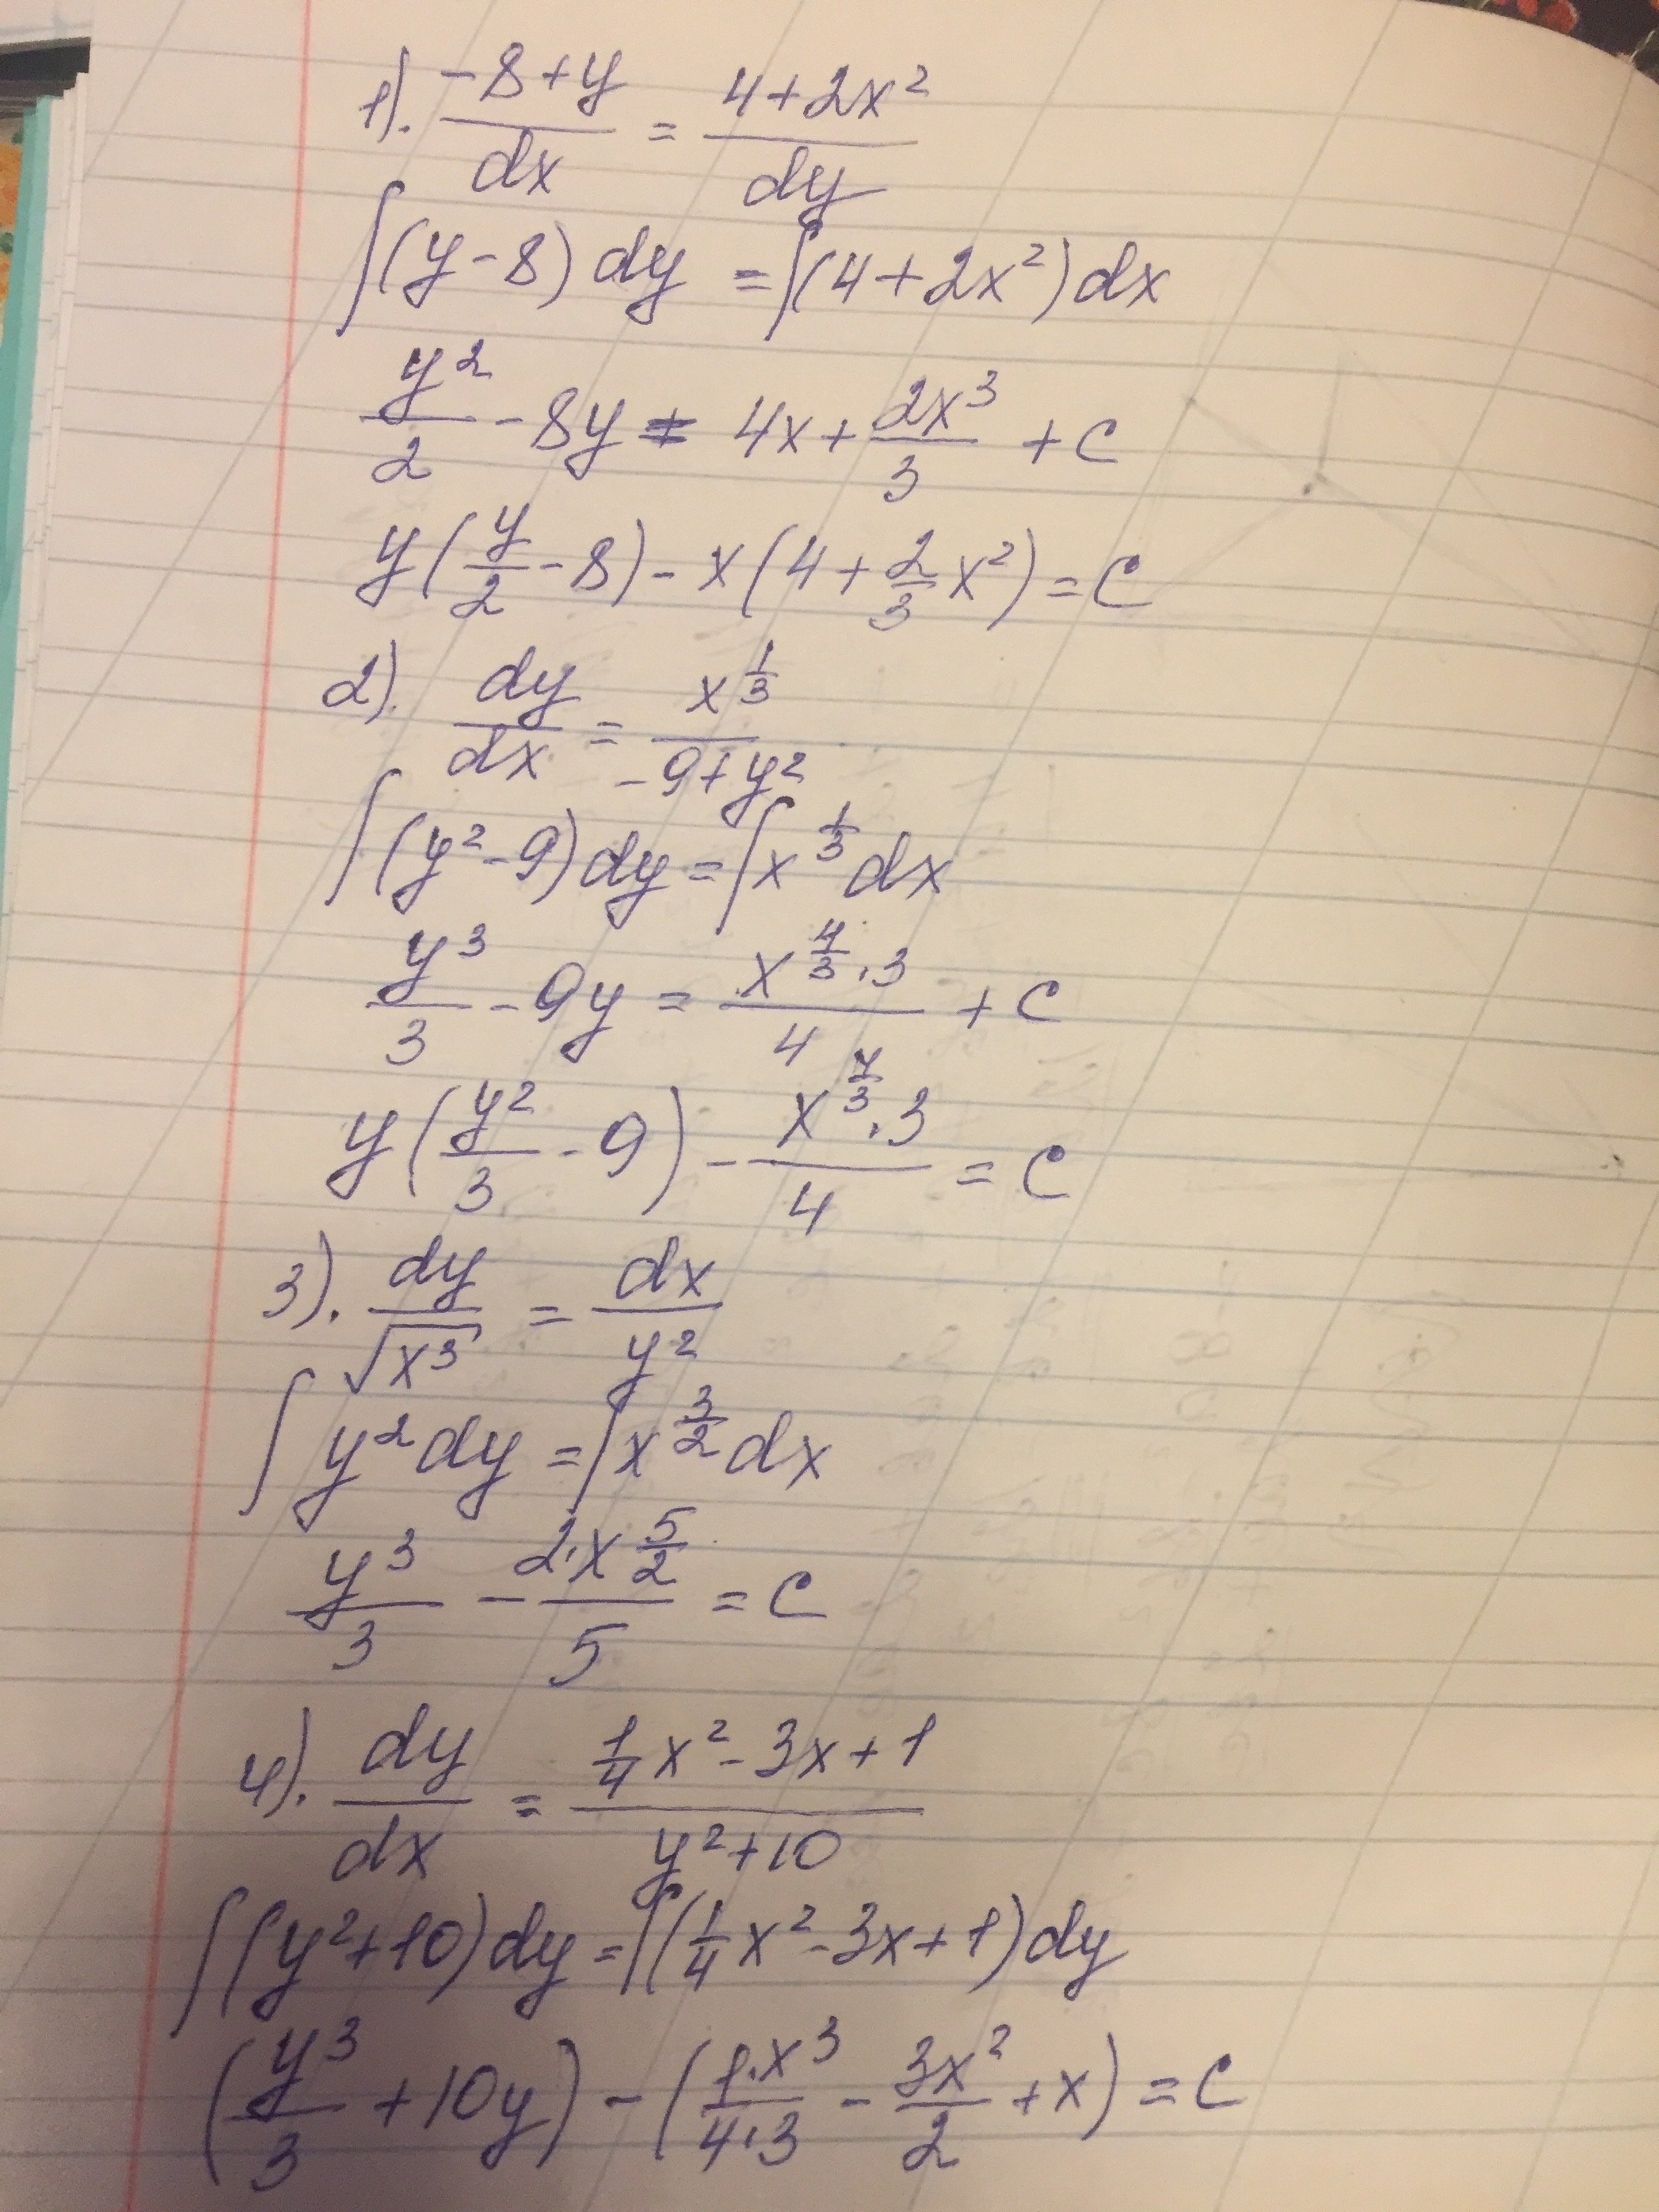 1). (-8+y)/dx = (4+2x²)/dy
∫(y-8)dy = ∫(4+2x²)dx
y²/2 - 8y = 4x + 2x³/3 + C
y(y/2 - 8) - x(4 + 2/3 x²) = C
2). dy/dx = x^(1/3)/(-9+y²)
∫(y²-9)dy = ∫x^(1/3)dx
y³/3 - 9y = (x^(4/3)·3)/4 + C
y(y²/3 - 9) - (x^(4/3)·3)/4 = C
3). dy/√(x³) = dx/y²
∫y²dy = ∫x^(3/2)dx
y³/3 - (2·x^(5/2))/5 = C
4). dy/dx = (1/4 x² - 3x + 1)/(y²+10)
∫(y²+10)dy = ∫(1/4 x² - 3x + 1)dy
(y³/3 + 10y) - ((1·x³)/(4·3) - 3x²/2 + x) = C